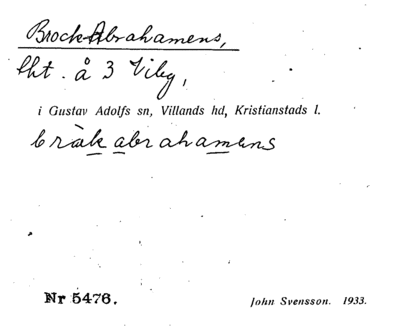 BrockAbrahamens,
lht. å 3 Viby,
i Gustav Adolfs sn, Villands hd, Kristianstads l.
bràkabrahamens
Nr 5476. John Svensson. 1933.